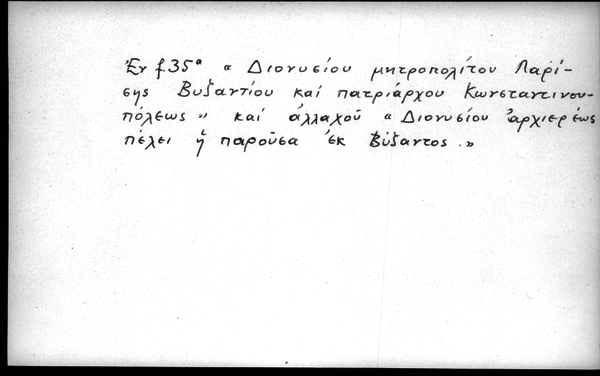 Ἐν f.35α « Διονυσίου μητροπολίτου Λαρί-
σης Βυζαντίου καί πατριάρχου Κωνσταντινου-
πόλεως » καί ἀλλαχοῦ « Διονυσίου ἀρχιερέως
πέλει ἡ παροῦσα ἐκ Βύζαντος .»